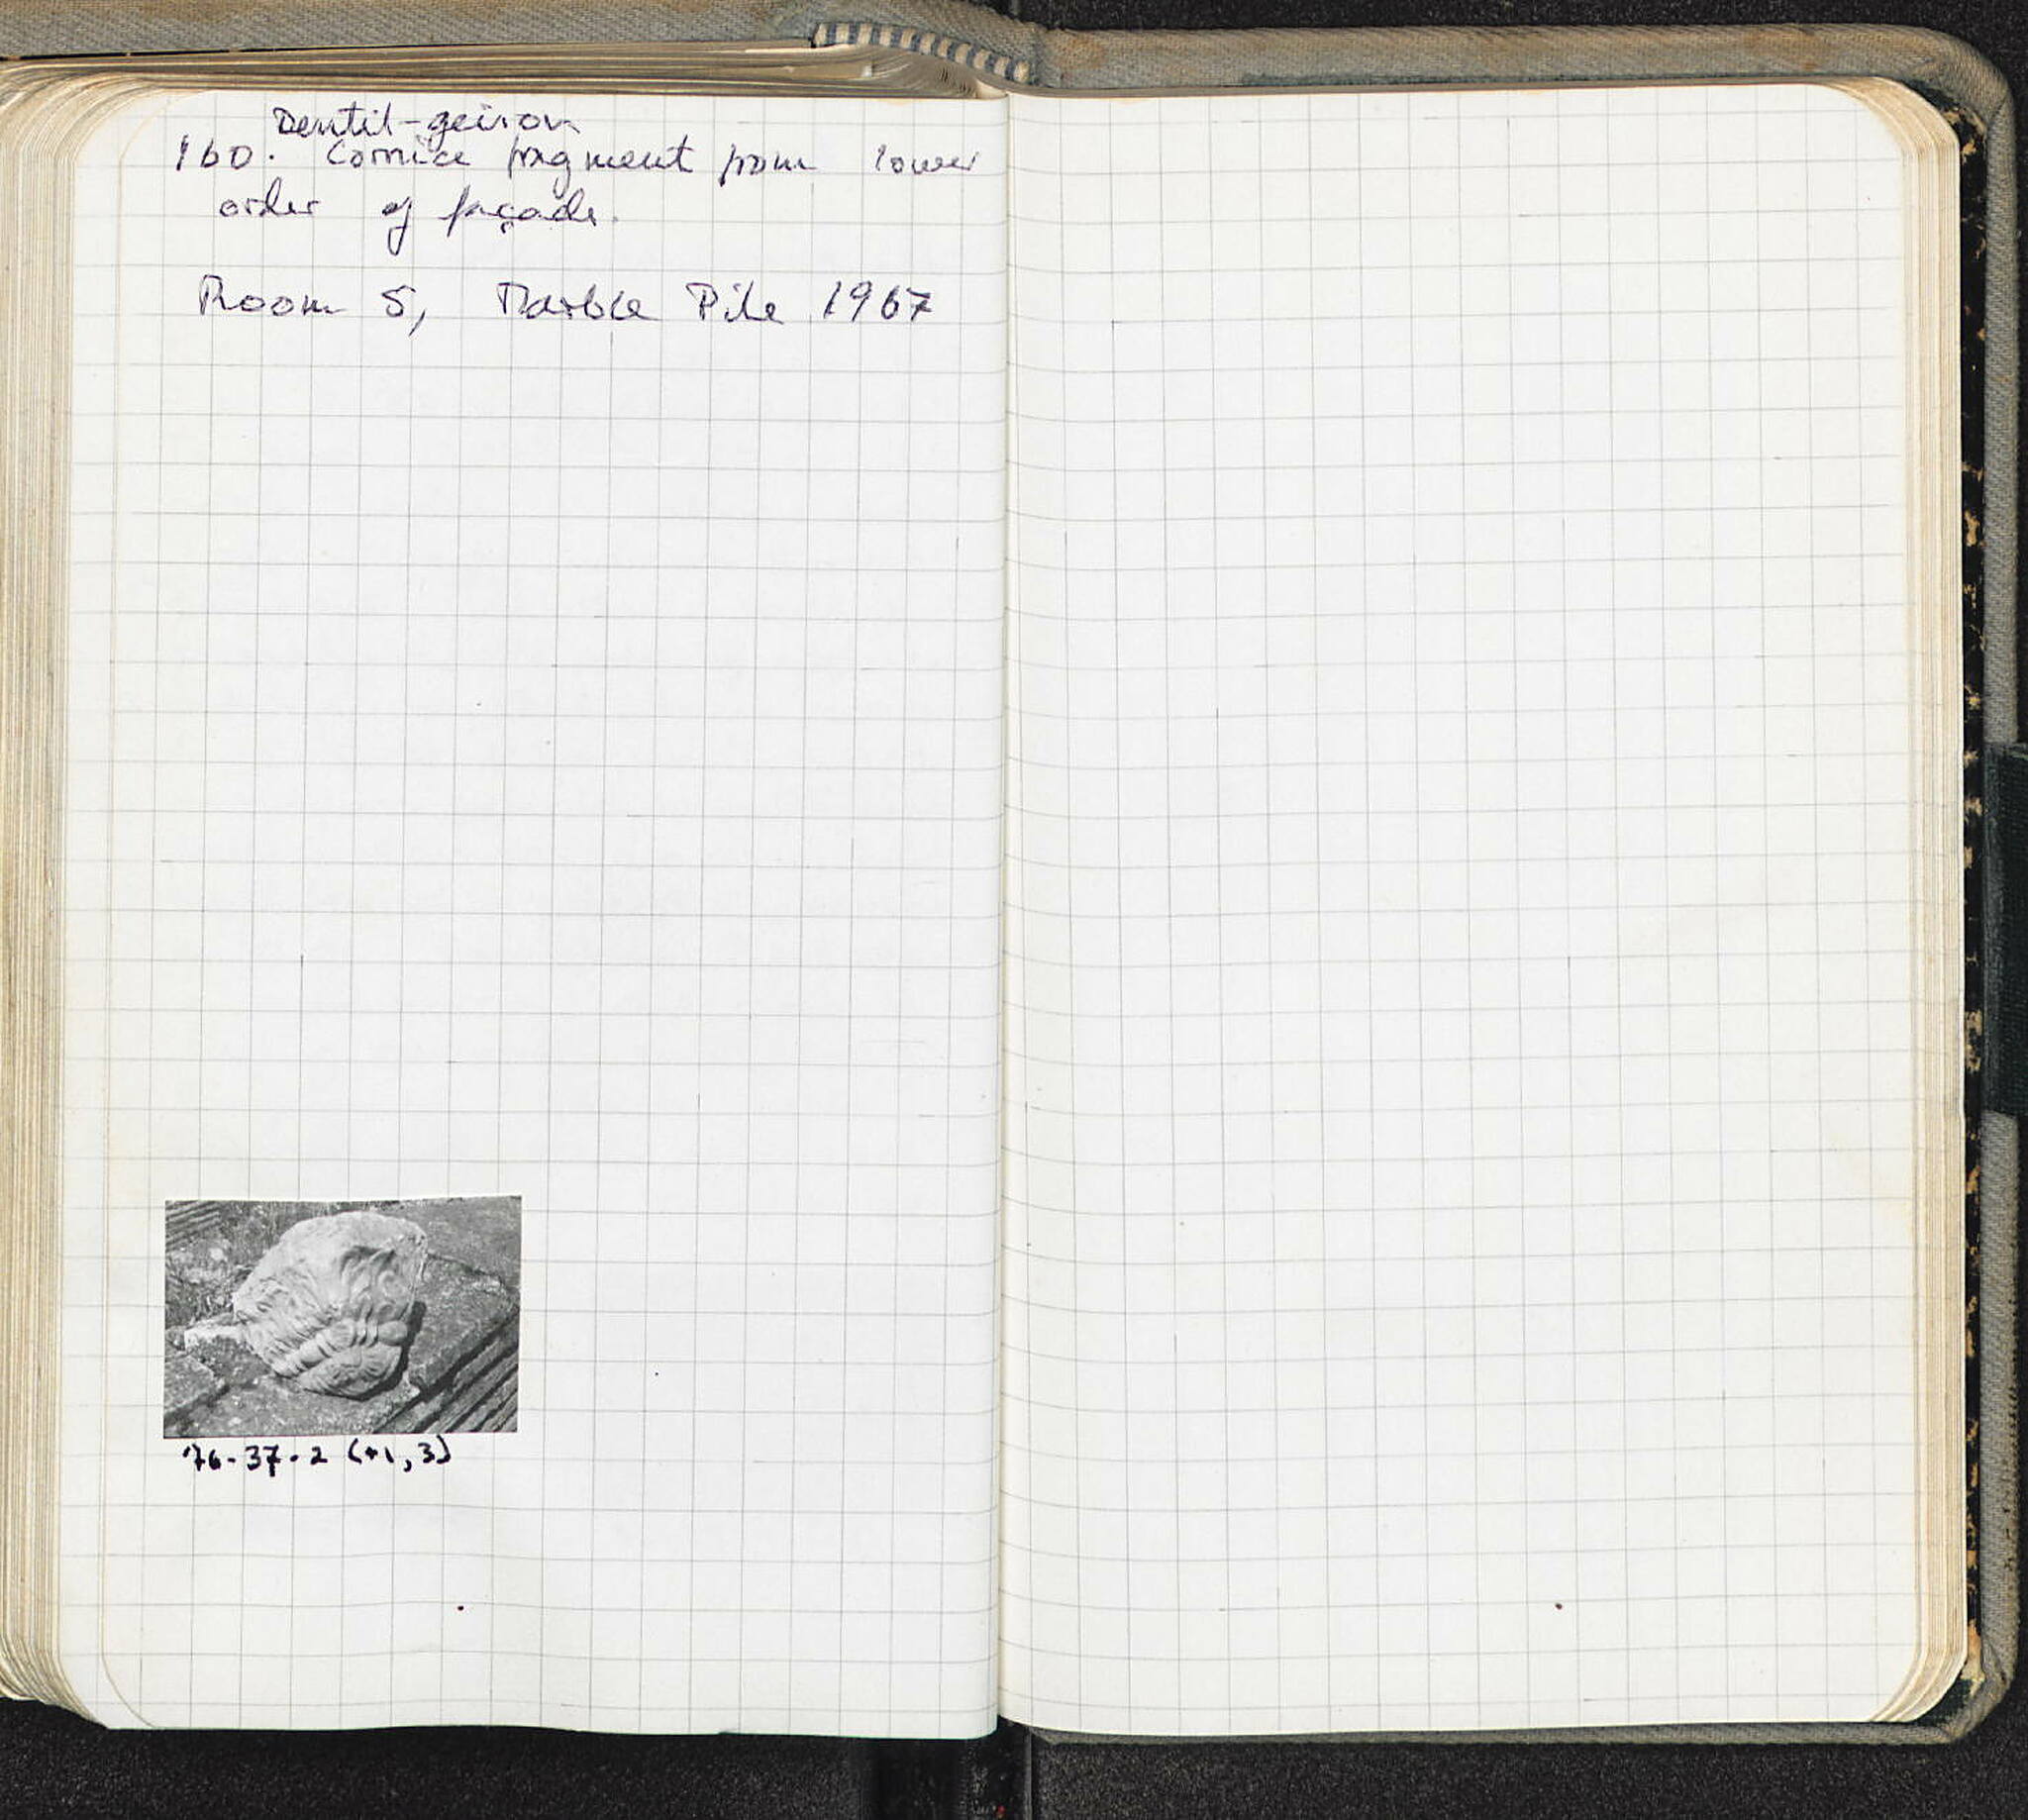 Dentil-geison
160. Cornice fragment from lower
order of façade.
Room 5, Marble Pile 1967
'76-37-2 (+1, 3)